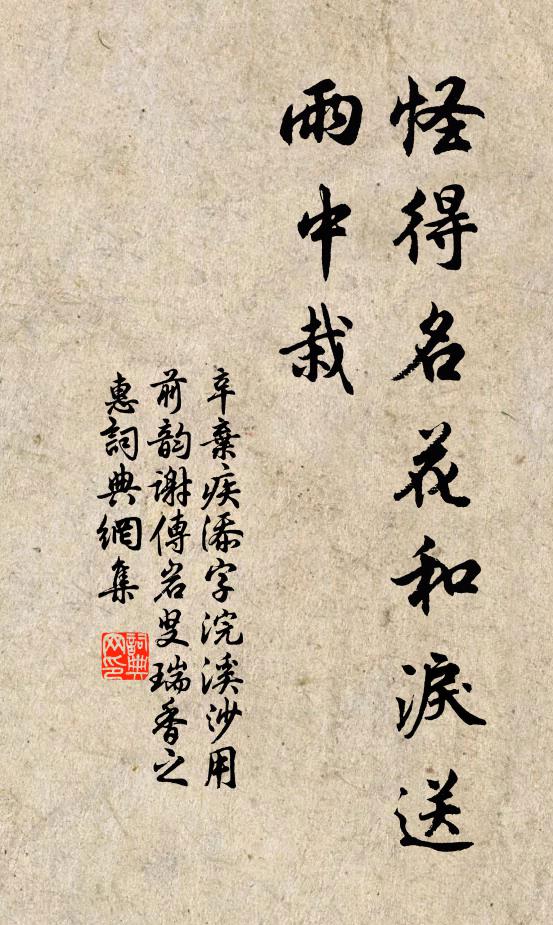 怪得名花和淚送
雨中栽
辛棄疾添字浣溪沙用
前韵謝傅岩叟瑞香之
惠詞典網集
詞典網印